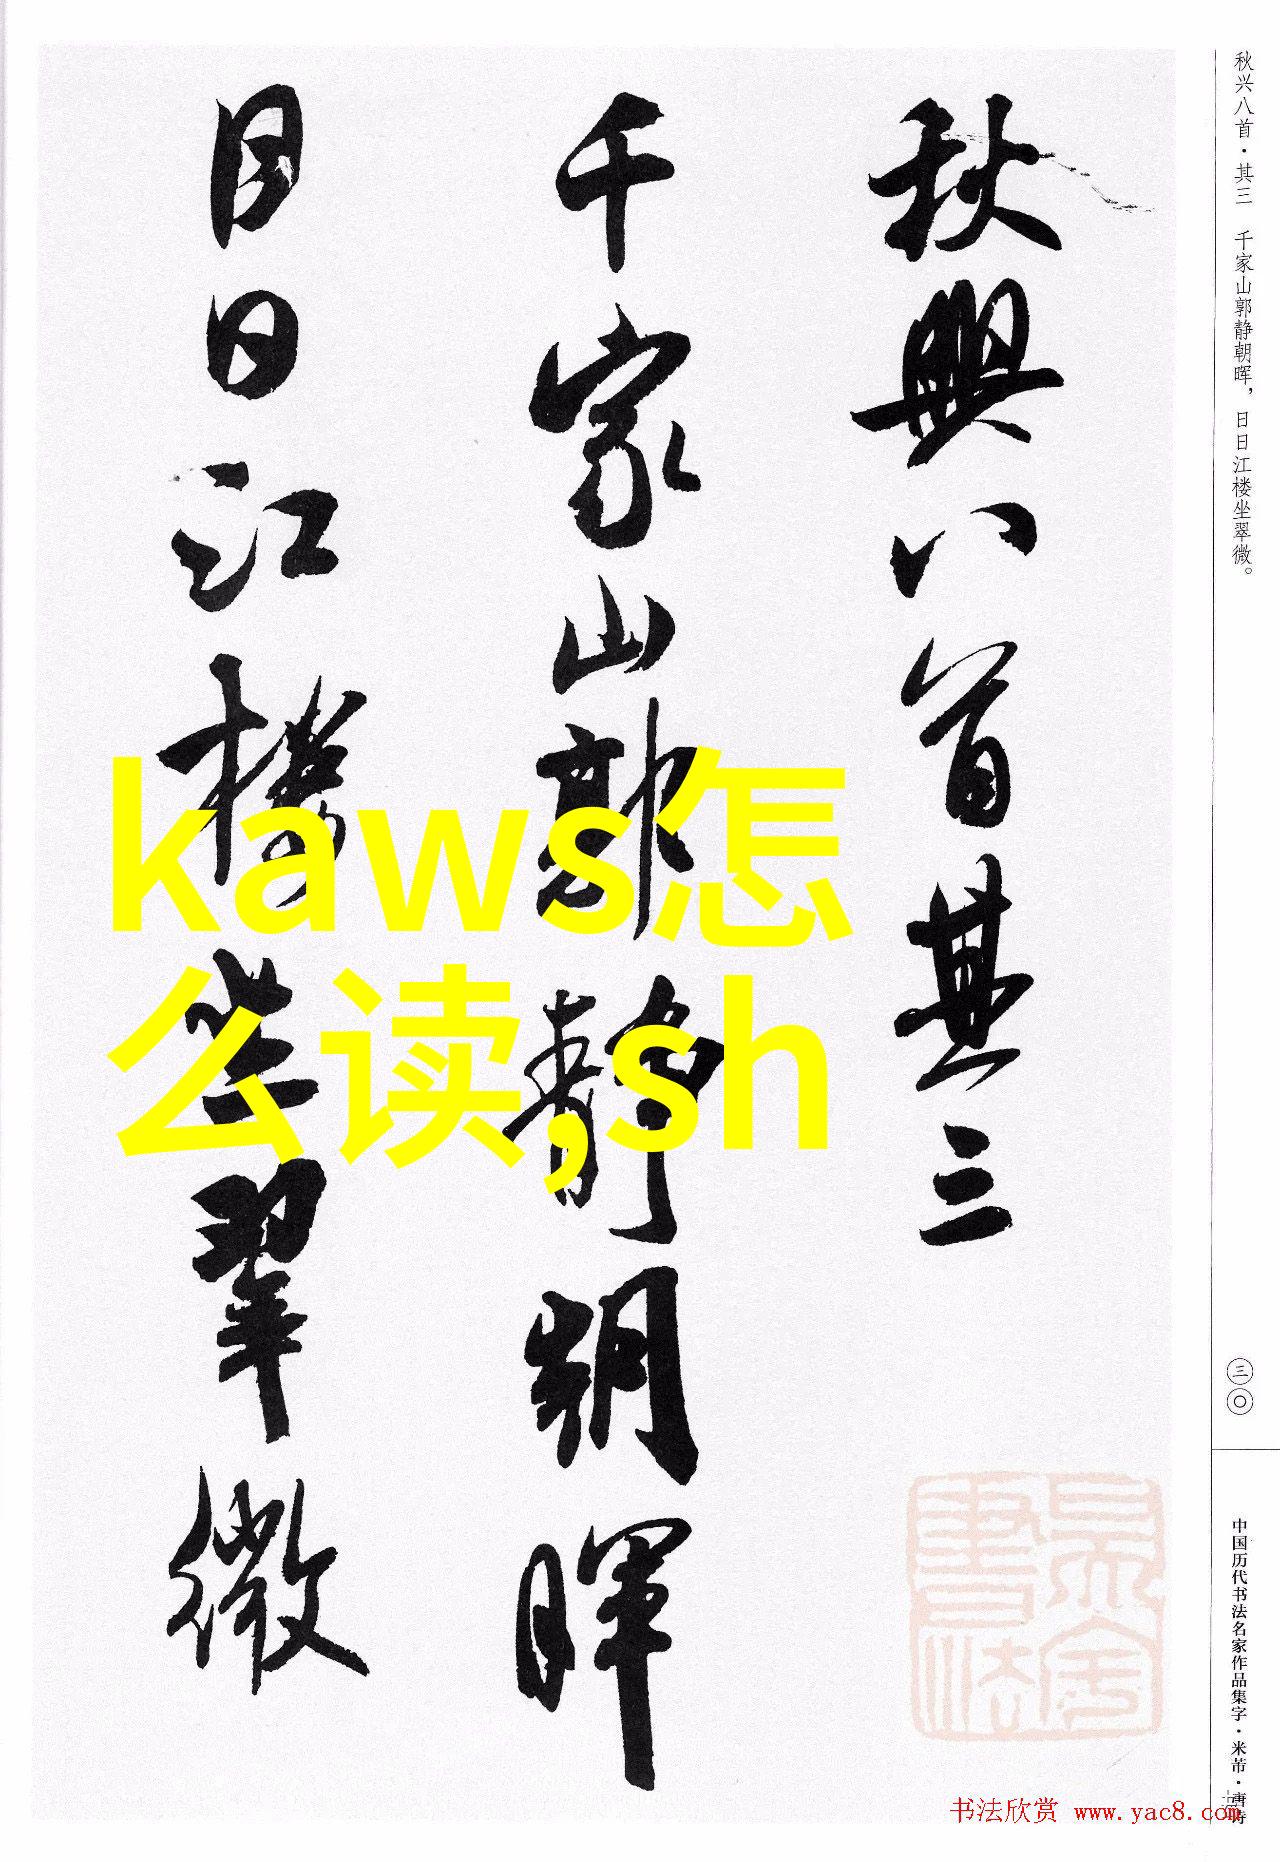 秋興八首其三
千家山郭静朝暉
日日江樓坐翠微
秋兴八首·其三 千家山郭静朝晖,日日江楼坐翠微。
三〇
中国历代书法名家作品集字·米芾·唐诗
kaws怎
么读,sh
书法欣赏 www.yac8.com